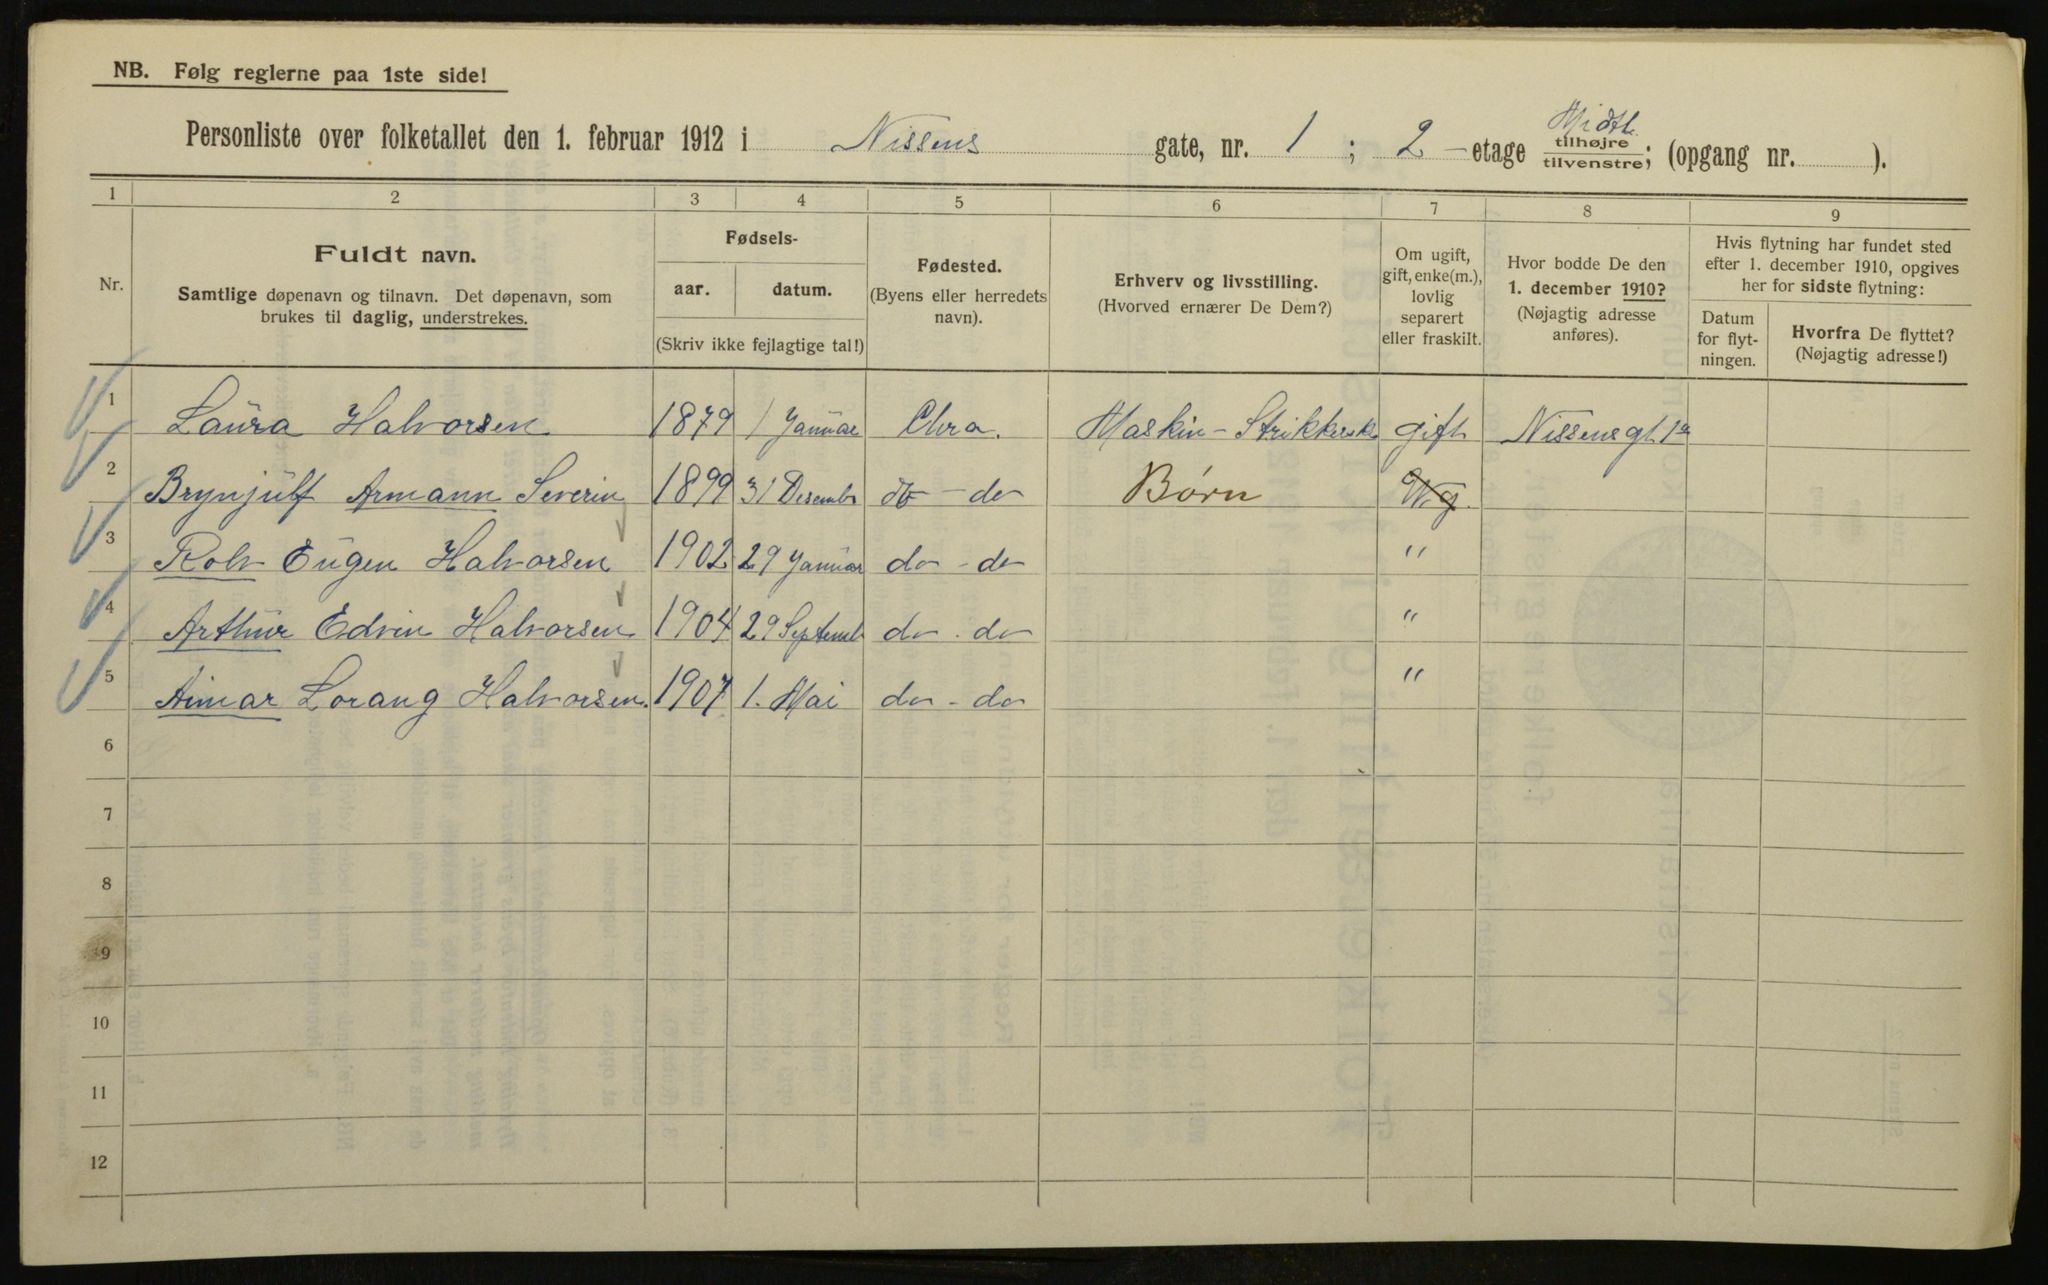 NB. Følg reglerne paa 1ste side!
Personliste over folketallet den 1. februar 1912 i Nissens gate, nr. 1 ; 2 - etage Midtl. tilhøjre tilvenstre; (opgang nr. ).
1 2 3 4 5 6 7 8 9
Nr.
Fuldt navn.
Samtlige døpenavn og tilnavn. Det døpenavn, som
brukes til daglig, understrekes.
Fødsels-
aar. datum.
(Skriv ikke fejlagtige tal!)
Fødested.
(Byens eller herredets
navn).
Erhverv og livsstilling.
(Hvorved ernærer De Dem?)
Om ugift,
gift, enke(m.),
lovlig
separert
eller fraskilt.
Hvor bodde De den
1. december 1910?
(Nøjagtig adresse
anføres).
Hvis flytning har fundet sted
efter 1. december 1910, opgives
her for sidste flytning:
Datum
for flyt-
ningen.
Hvorfra De flyttet?
(Nøjagtig adresse!)
1 Laura Halvorsen 1879 1 Januar Chra. Maskin-Strikkersk gift Nissensgt 1a
2 Brynjulf Armann Severin 1899 31 Desembr do - do Børn Ug.
3 Rolv Eugen Halvorsen 1902 29 Januar do - do "
4 Arthur Edvin Halvorsen 1904 29 Septemb do - do "
5 Aimar Lorang Halvorsen. 1907 1. Mai do - do "
6
7
8
9
10
11
12